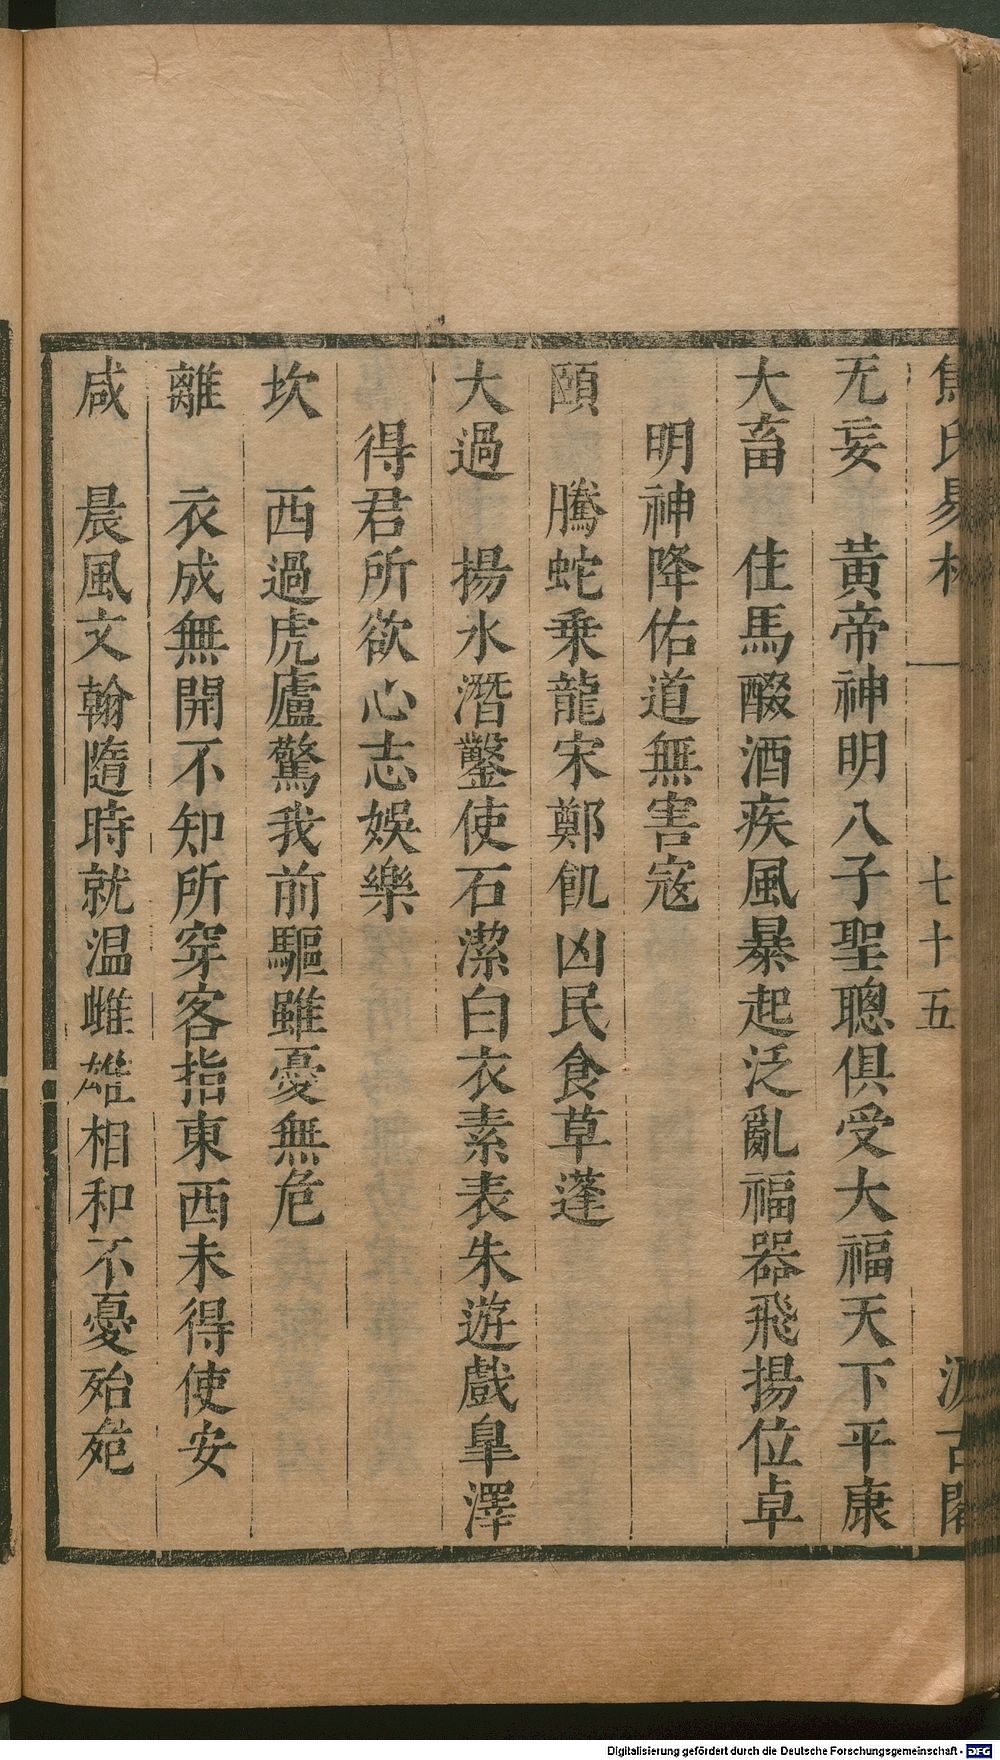 焦氏易林 一 七十五 汲古閣
无妄 黄帝神明八子聖聰俱受大福天下平康
大畜 住馬醊酒疾風暴起泛亂福器飛揚位卓
明神降佑道無害寇
頤 騰蛇乗龍宋鄭飢凶民食草蓬
大過 揚水潛鑿使石潔白衣素表朱遊戲臯澤
得君所欲心志娛樂
坎 西過虎廬驚我前驅雖憂無危
離 衣成無開不知所穿客指東西未得使安
咸 晨風文翰隨時就温雌雄相和不憂殆危
Digitalisierung gefördert durch die Deutsche Forschungsgemeinschaft - DFG